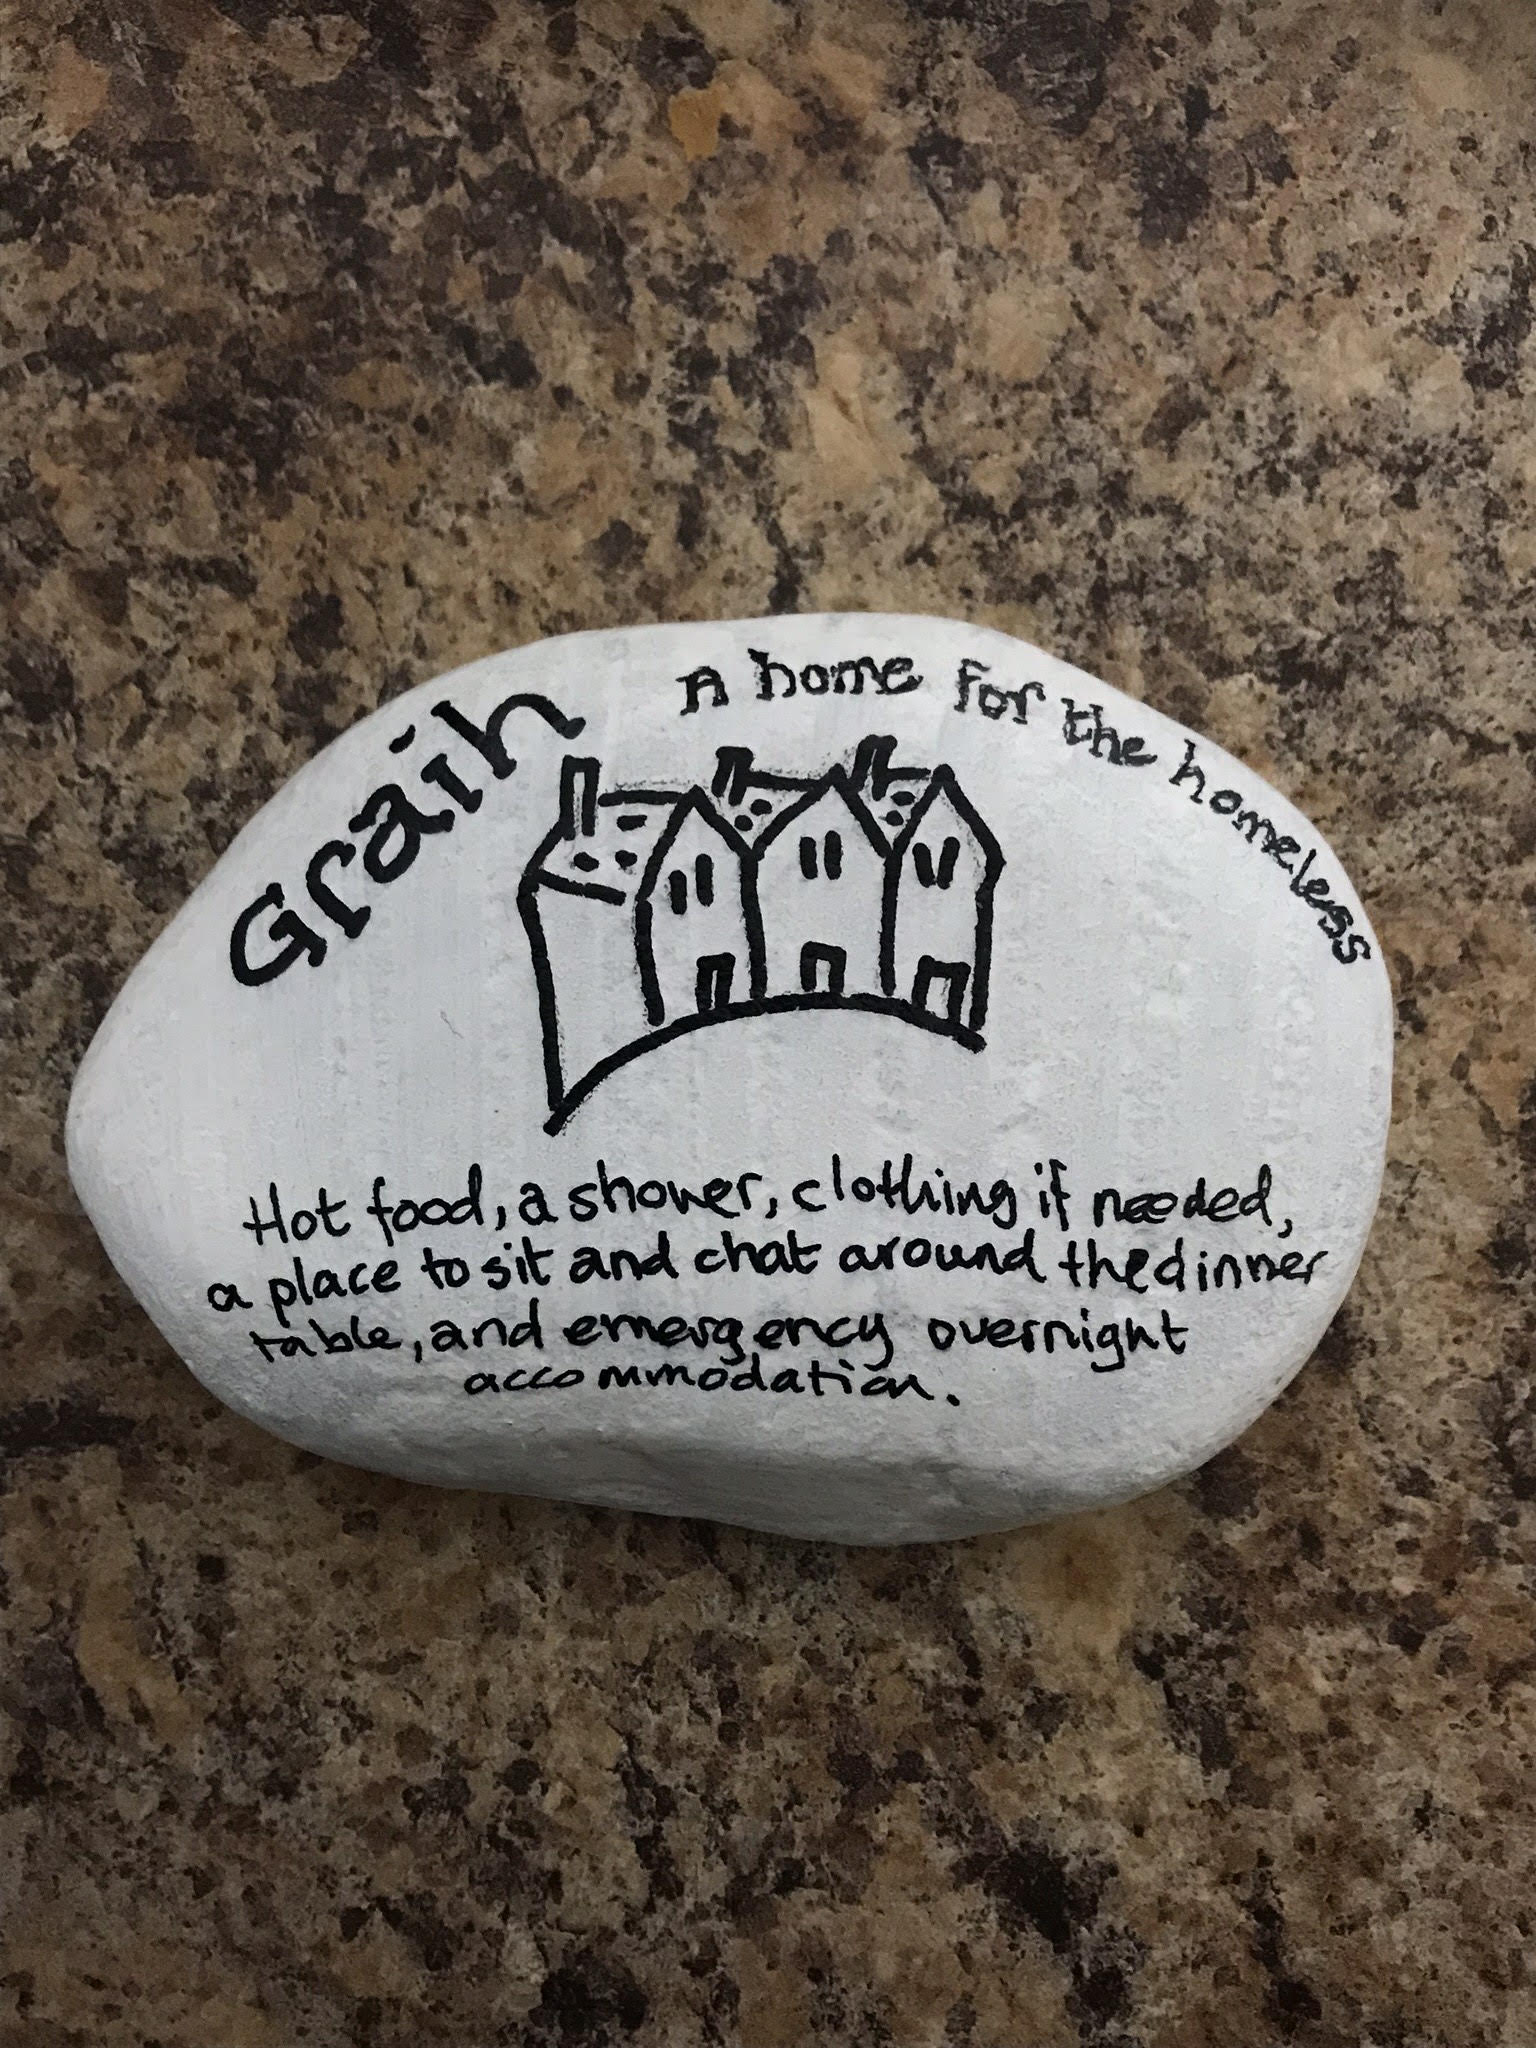 Graih
A home for the homeless
Hot food, a shower, clothing if needed,
a place to sit and chat around the dinner
table, and emergency overnight
accommodation.